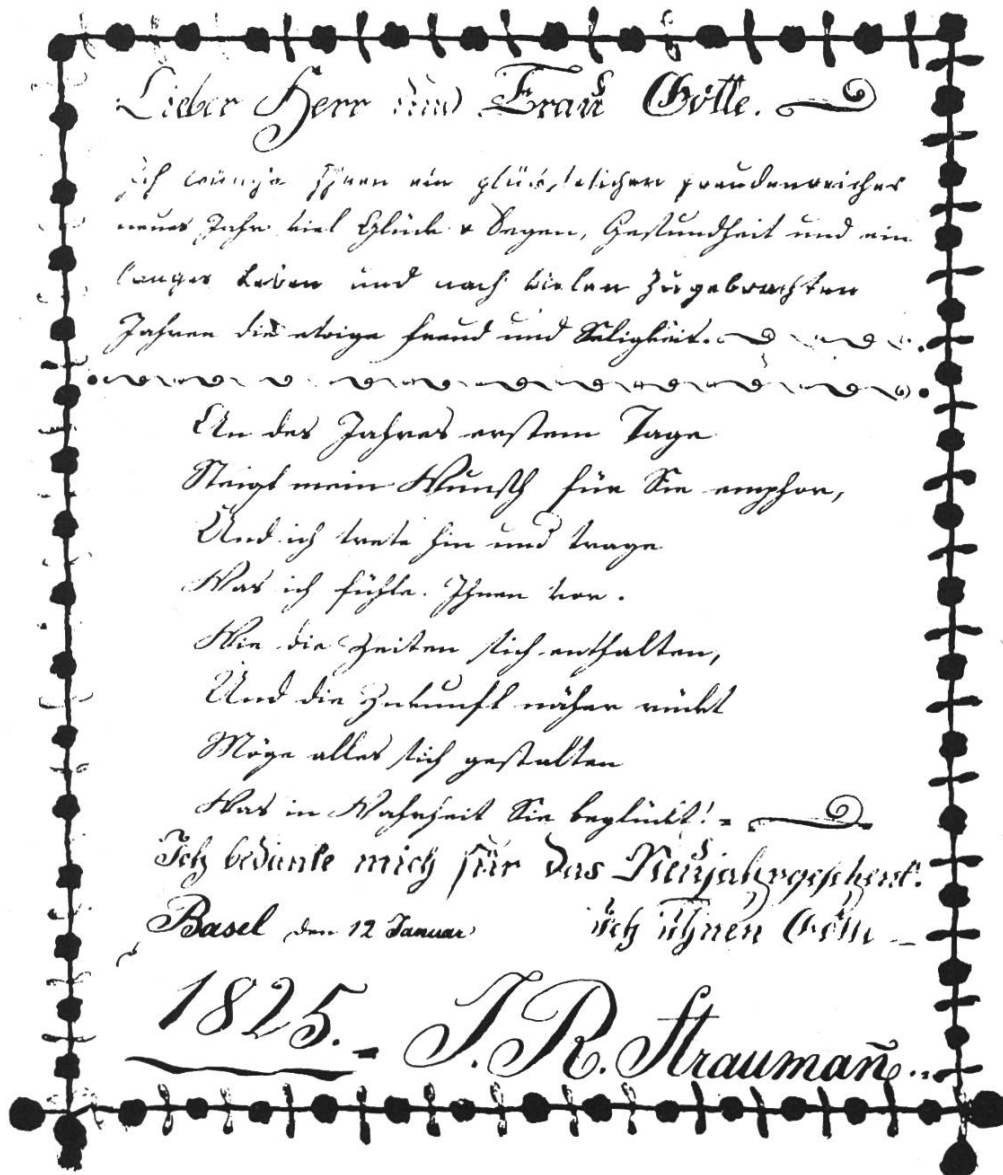 Lieber Herr und Frau Götte.
Ich wünsche Ihnen ein glückseliches freudenreiches
neues Jahr viel Glück & Segen, Gesundheit und ein
langes Leben und nach vielen zugebrachten
Jahren die ewige Freud und Seligkeit.
An des Jahres erstem Tage
Steigt mein Wunsch für Sie emphor,
Und ich trete hin und trage
Was ich fühle. Ihnen vor.
Wie die Zeiten sich enthalten,
Und die Zukunft näher rückt
Möge alles sich gestalten
Was in Wahrheit Sie beglückt!
Ich bedanke mich für das Neujahrgeschenk.
Basel den 12 Januar
1825. J. R. Straumañ